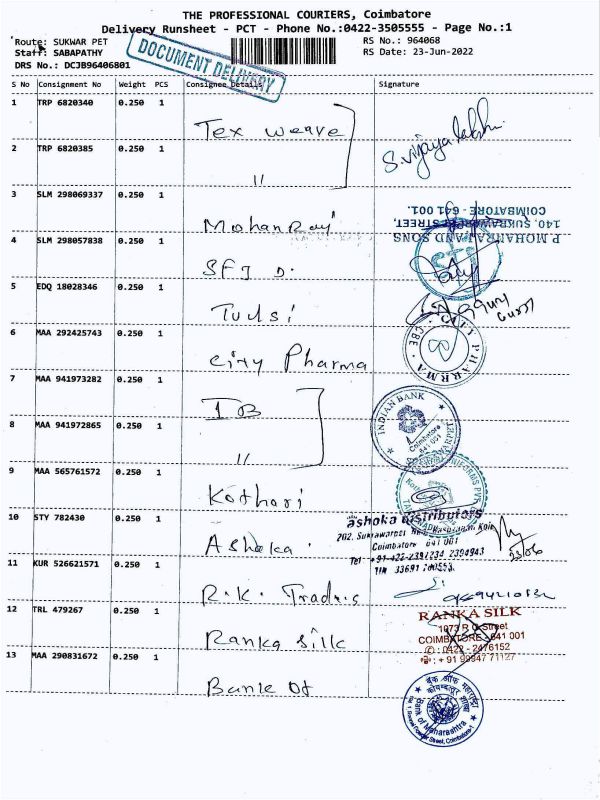 THE PROFESSIONAL COURIERS, Coimbatore
Delivery Runsheet - PCT - Phone No.:0422-3505555 - Page No.:1
Route: SUKWAR PET
RS No.: 964068
Staff: SABAPATHY
RS Date: 23-Jun-2022
DRS No.: DCJB96406801
DOCUMENT DELIVERY
S No Consignment No Weight PCS Consignee Details Signature
1 TRP 6820340 0.250 1 Tex weave
2 TRP 6820385 0.250 1 "
S. Vijayalakshmi
3 SLM 298069337 0.250 1 Mohan Raj
P MOHANRAJ AND SONS
140, SUKRAWARPET STREET,
COIMBATORE - 641 001.
4 SLM 298057838 0.250 1 SFJ D.
5 EDQ 18028346 0.250 1 Tulsi
6 MAA 292425743 0.250 1 City Pharma
CITY PHARMA CBE
7 MAA 941973282 0.250 1 IOB
8 MAA 941972865 0.250 1 "
INDIAN BANK
Coimbatore
641 001
9 MAA 565761572 0.250 1 Kothari
10 STY 782430 0.250 1 Ashoka
ashoka distributors
202, Sukrawarpet
Coimbatore 641 001
Tel +91-422-2391234 2394943
TIN 33691
23/06
11 KUR 526621571 0.250 1 R.K. Traders
12 TRL 479267 0.250 1 Ranka Silk
RANKA SILK
1073 R G Street
COIMBATORE - 641 001
: 0422 - 2476152
: + 91 99947 77127
13 MAA 290831672 0.250 1 Bank Of
बैंक ऑफ महाराष्ट्र
Bank of Maharashtra